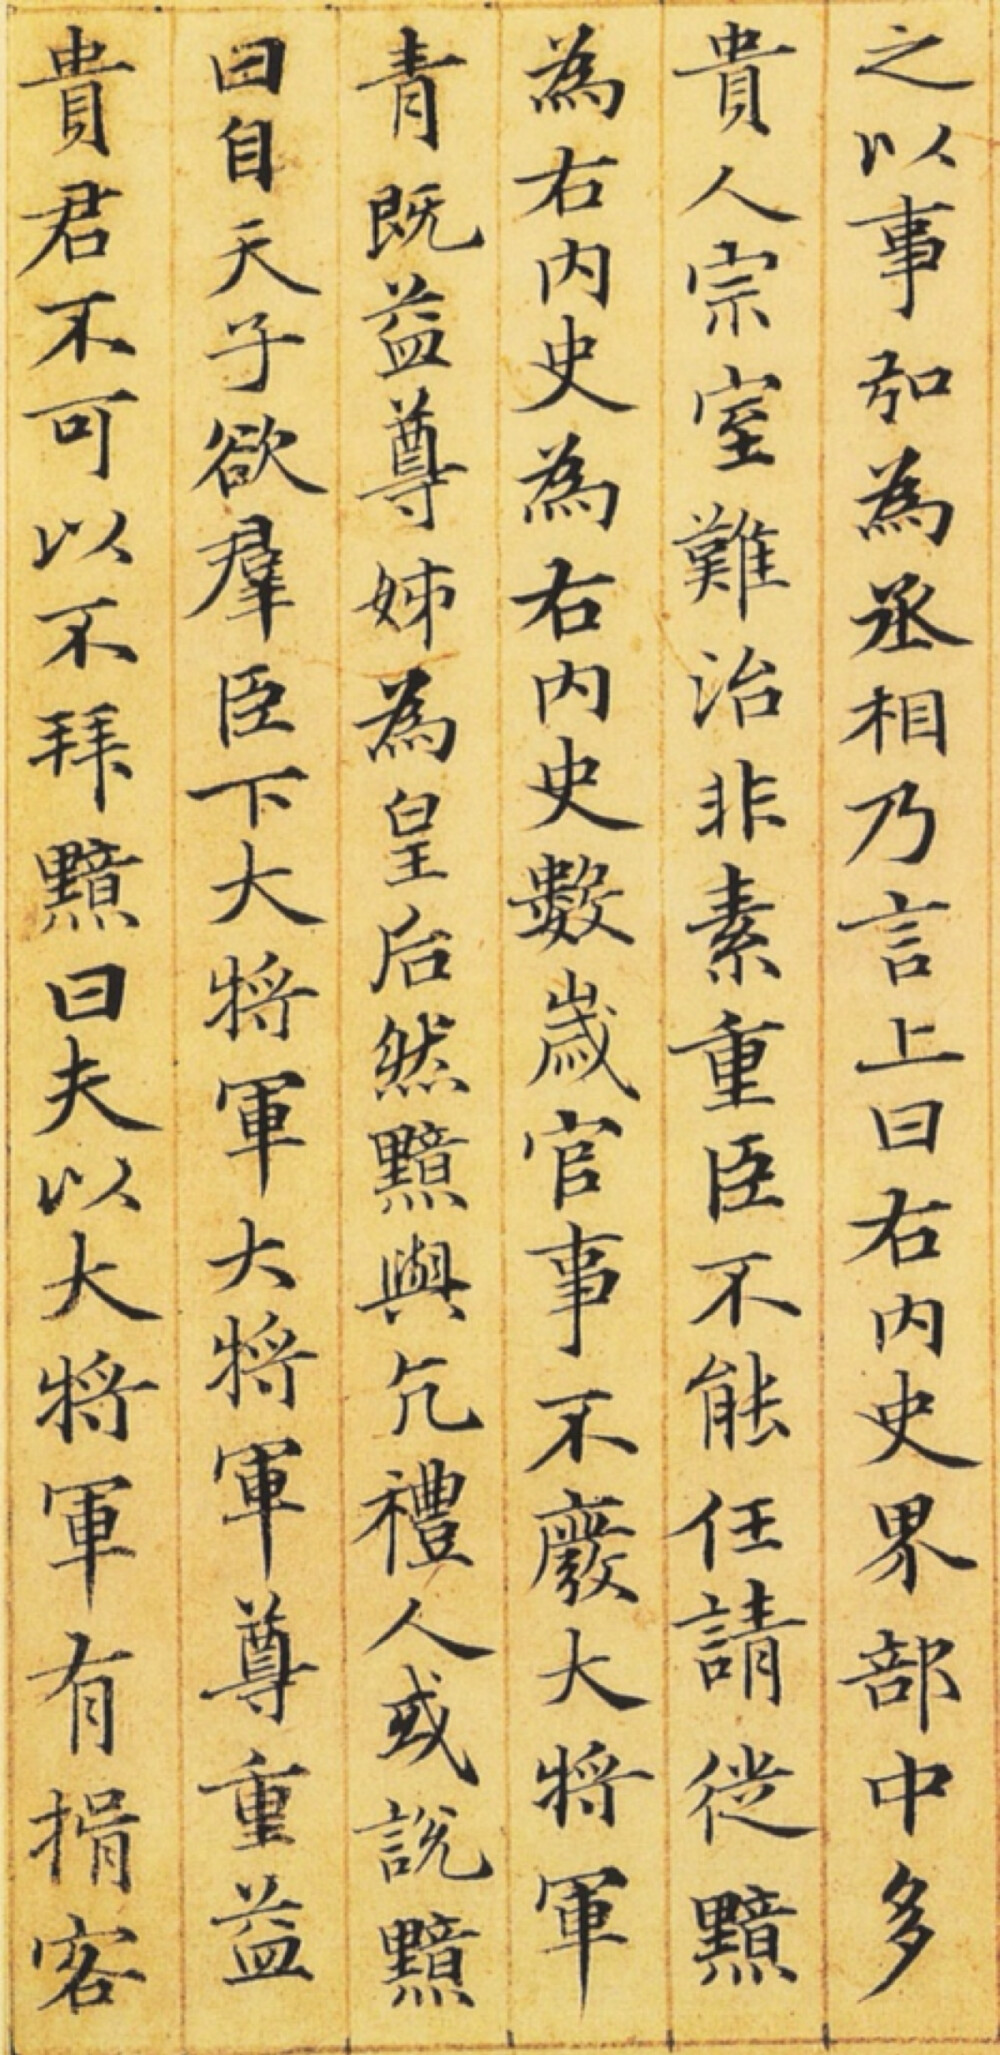 之以事弘為丞相乃言上曰右內史界部中多
貴人宗室難治非素重臣不能任請徙黯
為右內史為右內史數歲官事不廢大將軍
青既益尊姊為皇后然黯與亢禮人或說黯
曰自天子欲羣臣下大將軍大將軍尊重益
貴君不可以不拜黯曰夫以大將軍有揖客